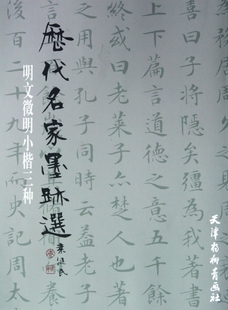 曰子將隱矣彊為我
上下篇言道德之意
終或曰老萊子亦楚人也
之用與孔子同時云益老子
後百二十九年
周太
歷代名家墨跡選
明文徵明小楷三种
天津杨柳青画社